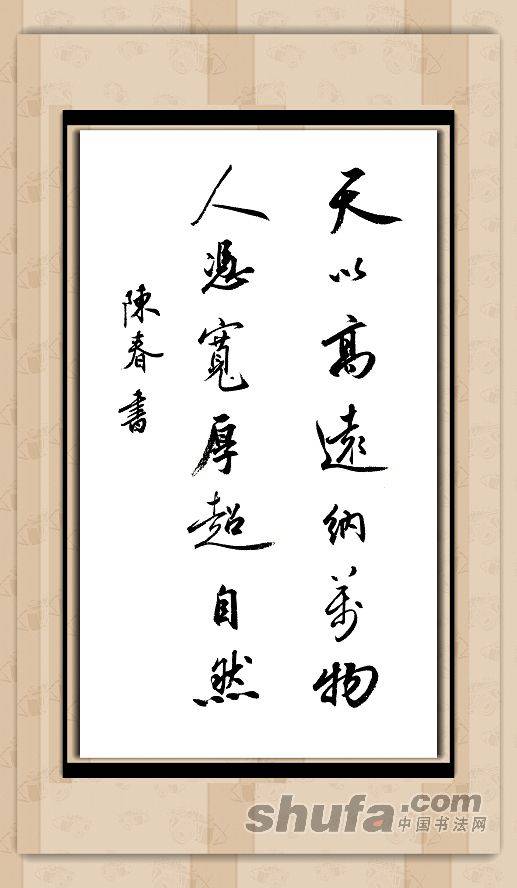 天以高遠納萬物
人憑寬厚超自然
陳春書
shufa.com
中国书法网